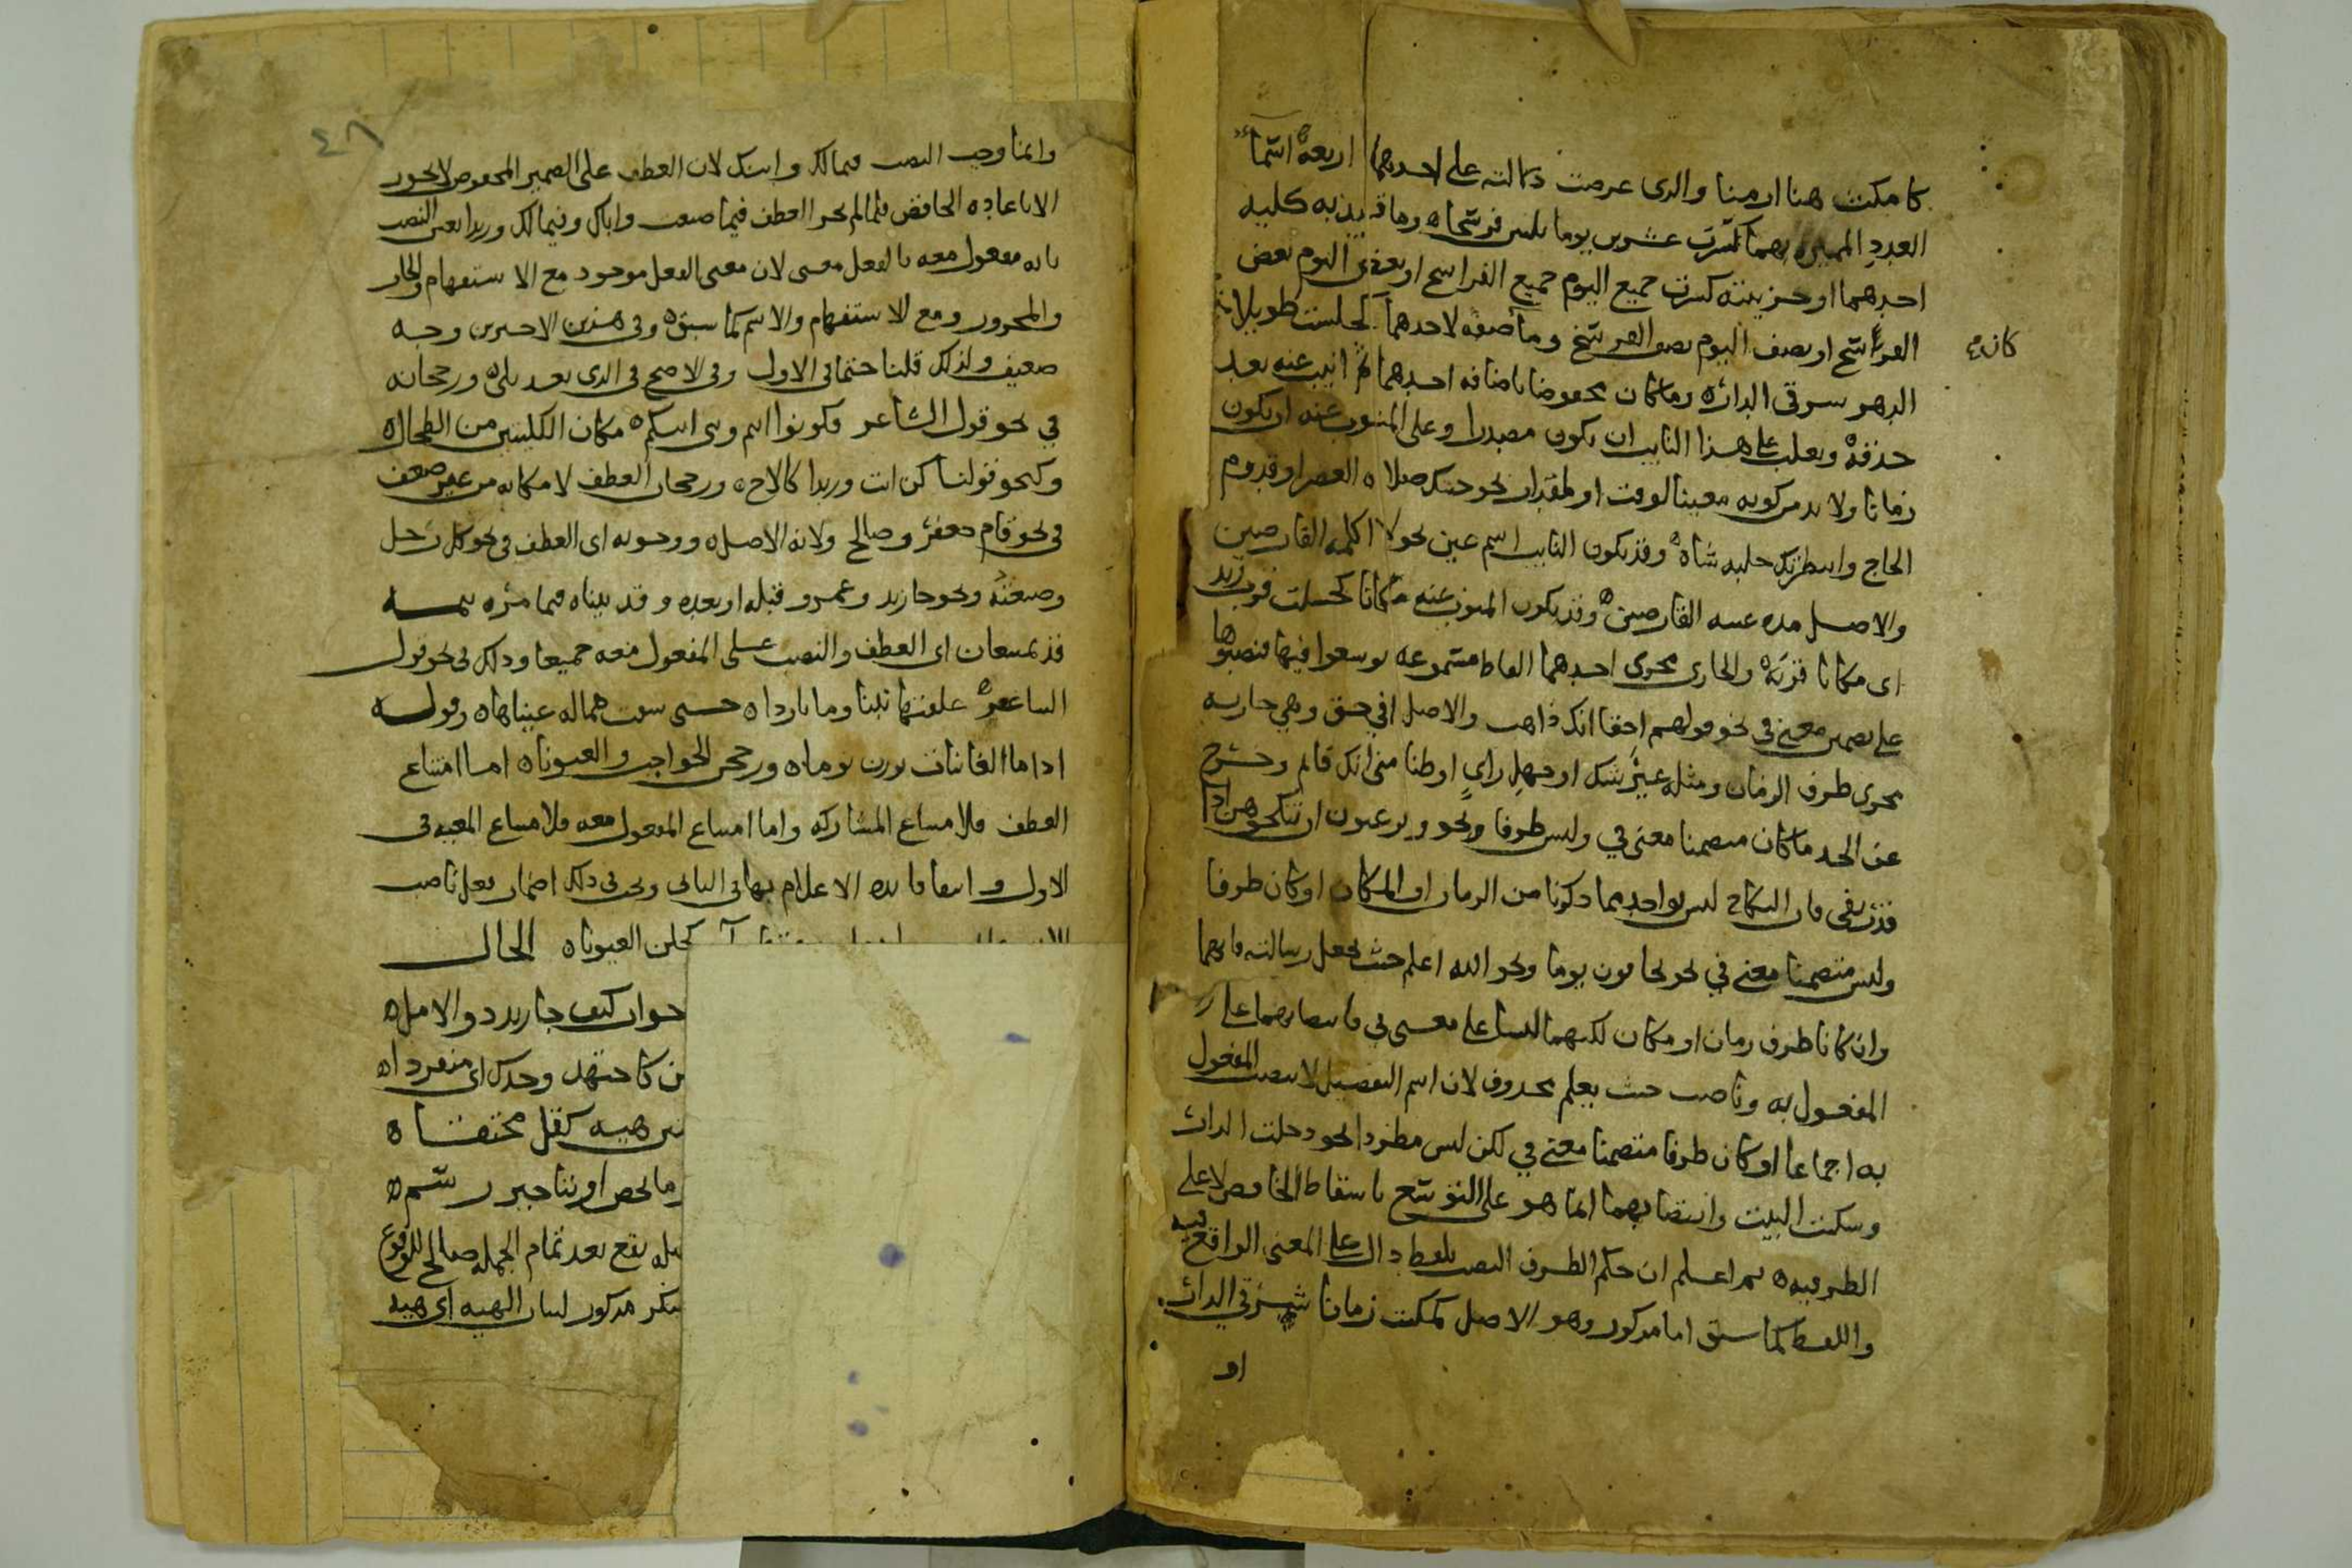 كا مكثت هنا ازمنا والذى عرضت دلالته على احدهما اربعة اسما
العدد المميزه بهما كسرت عشرين يوما ثلثين فرسخاه وما افيد به كليه
احدهما او جزييته كسرت جميع اليوم جميع الفراسخ او بعض اليوم بعض
الفراسخ او نصف اليوم نصف الفرسخ وما صفه لاحدهما كجلست طويلا من
كان م
الدهر شرقي الداره وما كان مخفوضا باضافه احدهما ثم انيب عنه بعد
حذفه ويغلب على هذا النايب ان يكون مصدرا وعلى المنوب عنه ان يكون
زمانا ولا بد من كونه معينا لوقت او لمقدار نحو جيتك صلاه العصر او قدوم
الحاج وانتظرتك حلبه شاه وقد يكون النايب اسم عين نحو لا اكلمه القارضين
والاصل مده غيبه القارضين وقد يكون المنوب عنه مكانا كجلست قرب زيد
اى مكانا قربه والجارى مجرى احدهما الفاظ مسموعه توسعوا فيها فنصبوها
على تضمين معنى فى نحو قولهم احقا انك ذاهب والاصل افي حق وهي جاريه
مجرى ظرف الزمان ومثله غير شك او جهد راي او ظنا مني انك قايم وخرج
عن الحد ما كان متضمنا معنى في وليس ظرفا ونحو وترغبون ان تنكحوهن اذا
قدر بفى فان النكاح ليس بواحد مما ذكرنا من الزمان او المكان او كان ظرفا
وليس متضمنا معنى في نحو يخافون يوما ونحو الله اعلم حيث يجعل رسالته فانهما
وان كانا ظرف زمان او مكان لكنهما ليسا على معنى في فانتصابهما على
المفعول به وناصب حيث يعلم محذوف لان اسم التفضيل لا ينصب المفعول
به اجماعا او كان ظرفا متضمنا معنى في لكن ليس مطردا نحو دخلت الدار
وسكنت البيت وانتصابهما انما هو على التوسع باسقاط الخافض لا على
الظرفيه ثم اعلم ان حكم الظرف النصب بلفظ دال على المعنى الواقع فيه
واللفظ كما سبق اما مذكور وهو الاصل كمكثت زمانا شرقي الدار
او
٤٨
وانما وجب النصب فى مالك وابنك لان العطف على الضمير المخفوض لا يجوز
الا باعاده الخافض فلما لم يجز العطف فيما صنعت واباك وفيمالك وزيدا تعين النصب
بانه مفعول معه بالفعل معنى لان معنى الفعل موجود مع الاستفهام والجار
والمجرور ومع الاستفهام والاسم كما سبق وفى هذين الاخيرين وجه
ضعيف ولذلك قلنا حتما فى الاول وفى الاصح فى الذى بعد ورجحانه
في نحو قول الشاعر فكونوا انتم وبنى ابيكم مكان الكليتين من الطحال
وكنحو قولنا كن انت وزيدا كالاخ ورجحان العطف لامكانه من غير ضعف
فى نحو قام جعفر وصالح ولانه الاصل ووجوبه اى العطف فى نحو كل رجل
وضيعته ونحو جا زيد وعمرو قبله او بعده وقد بيناه فيما مر
قد يمتنعان اى العطف والنصب على المفعول معه جميعا وذلك فى نحو قول
الشاعر علفتها تبنا وما باردا حتى شتت هماله عيناها وقوله
اذا ما الغانيات برزن يوما وزججن الحواجب والعيونا اما امتناع
العطف فلامتناع المشاركه واما امتناع المفعول معه فلامتناع المعيه فى
الاول وانتفا فايده الاعلام بها فى الثانى ويجب فى ذلك اضمار فعل ناصب
كحلن العيونا الحال
جواب كيف جا زيد
كاجتهد وحدك اى منفردا
هيه كقل مختصا
يقع بعد تمام الجمله صالح للوقوع
مذكور لبيان الهيه اى هيه